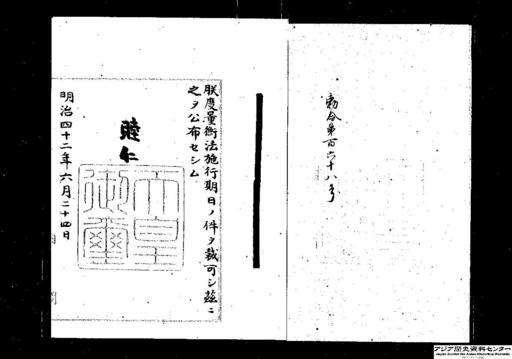 勅令第百六十八号
朕度量衡法施行期日ノ件ヲ裁可シ茲ニ
之ヲ公布セシム
睦仁
天皇御璽
明治四十二年六月二十四日
アジア歴史資料センター
Japan Center for Asian Historical Records